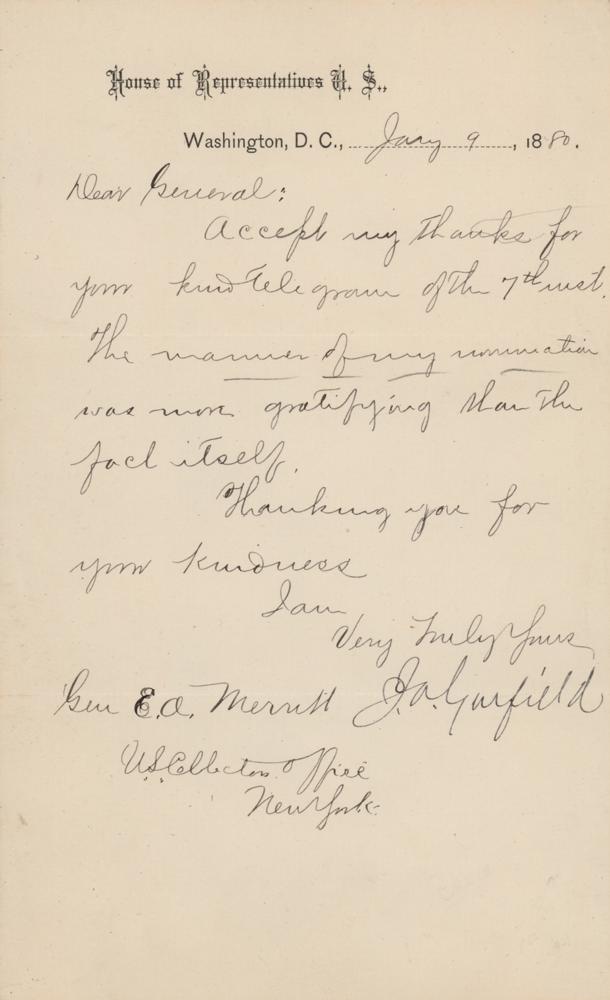 House of Representatives U. S.,
Washington, D. C., Jany 9, 1880.
Dear General:
Accept my thanks for
your kind telegram of the 7th inst.
The manner of my nomination
was more gratifying than the
fact itself.
Thanking you for
your kindness
I am
Very Truly Yours
J. A. Garfield
Gen E. A. Merritt
U.S. Collectors Office
New York.